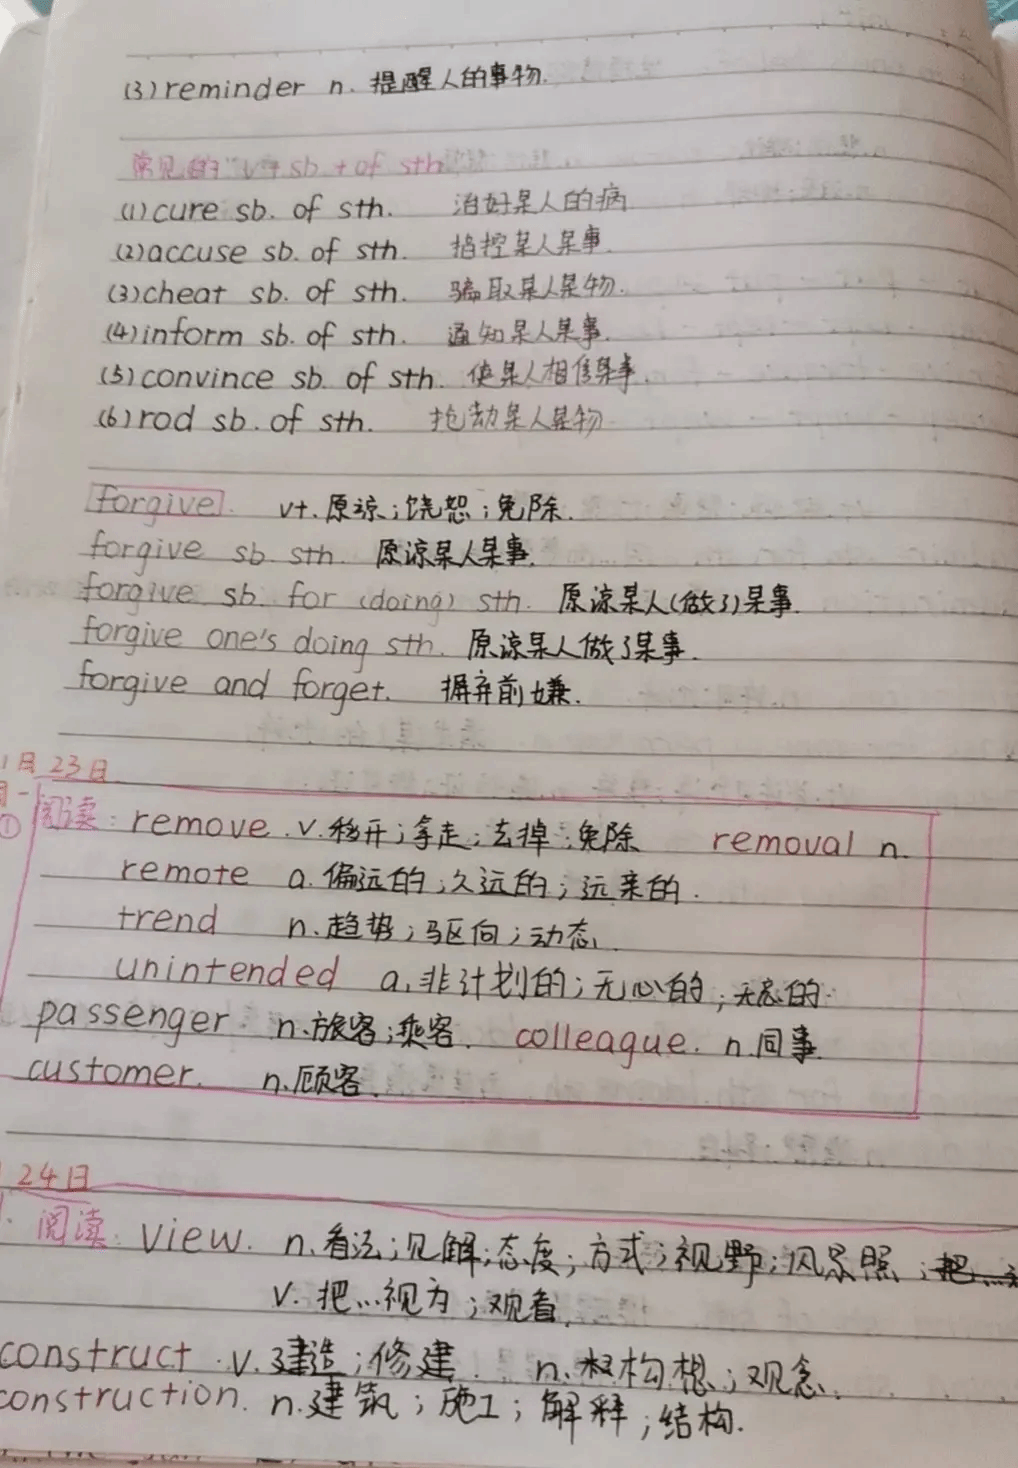 (3) reminder n. 提醒人的事物.
常见的 "v+ sb. + of sth
(1) cure sb. of sth. 治好某人的病
(2) accuse sb. of sth. 指控某人某事.
(3) cheat sb. of sth. 骗取某人某物.
(4) inform sb. of sth. 通知某人某事.
(5) convince sb. of sth. 使某人相信某事.
(6) rod sb. of sth. 抢劫某人某物
forgive. vt. 原谅;饶恕;免除.
forgive sb. sth. 原谅某人某事.
forgive sb. for (doing) sth. 原谅某人(做了)某事.
forgive one's doing sth. 原谅某人做了某事.
forgive and forget. 摒弃前嫌.
月23日
① 阅读: remove. v. 移开;拿走;去掉;免除 removal n.
remote a. 偏远的;久远的;远亲的.
trend n. 趋势;驱向;动态.
unintended a. 非计划的;无心的;无意的.
passenger n. 旅客;乘客. colleague. n. 同事.
customer. n. 顾客.
24日
阅读: view. n. 看法;见解;态度;方式;视野;风景照;
v. 把...视为;观看.
construct v. 建造;修建 n. 构想;观念.
construction. n. 建筑;施工;解释;结构.